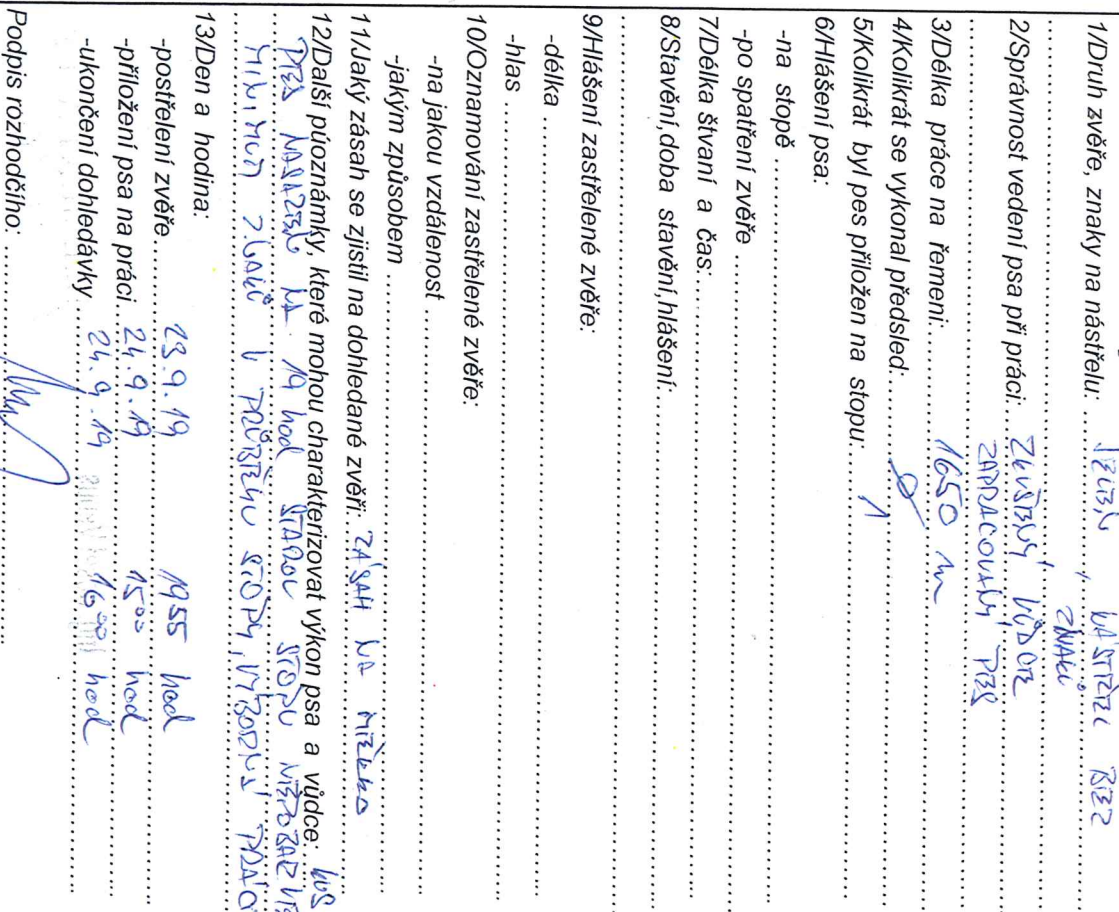 1/Druh zvěře, znaky na nástřelu: JELEN, NÁSTŘEL BEZ
ZNAKŮ
2/Správnost vedení psa při práci: ZKUŠENÝ VŮDCE
ZAPRACOVANÝ PES
3/Délka práce na řemeni: 1650 m
4/Kolikrát se vykonal předsled:
5/Kolikrát byl pes přiložen na stopu: 1
6/Hlášení psa:
-na stopě
-po spatření zvěře
7/Délka štvaní a čas:
8/Stavění,doba stavění,hlášení:
9/Hlášení zastřelené zvěře:
-délka
-hlas
10/Oznamování zastřelené zvěře:
-na jakou vzdálenost
-jakým způsobem
11/Jaký zásah se zjistil na dohledané zvěři: ZÁSAH NA MĚKKO
12/Další púoznámky, které mohou charakterizovat výkon psa a vůjdce.
PES NASAZEN NA 19 hod STAROU STOPU
MINIMUM ZNAKŮ V PRŮBĚHU STOPY, VÝBORNÁ
13/Den a hodina:
-postřelení zvěře 23.9.19 1955 hod
-přiložení psa na práci 24.9.19 1500 hod
-ukončení dohledávky 24.9.19 1600 hod
Podpis rozhodčího: